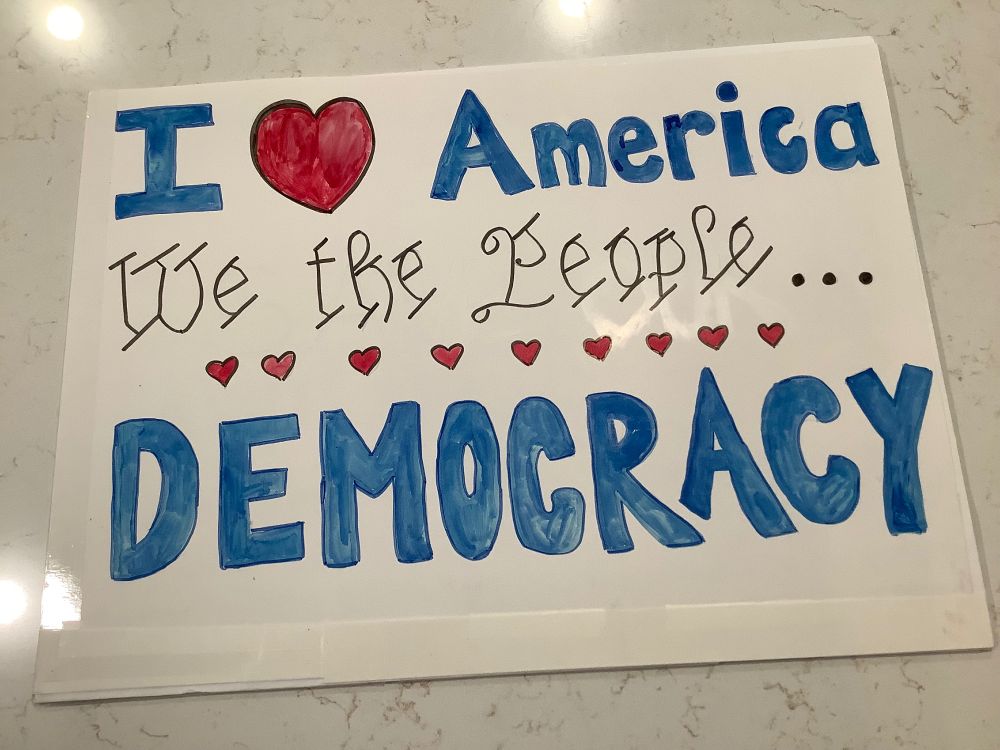 I ❤ America
We the People...
DEMOCRACY